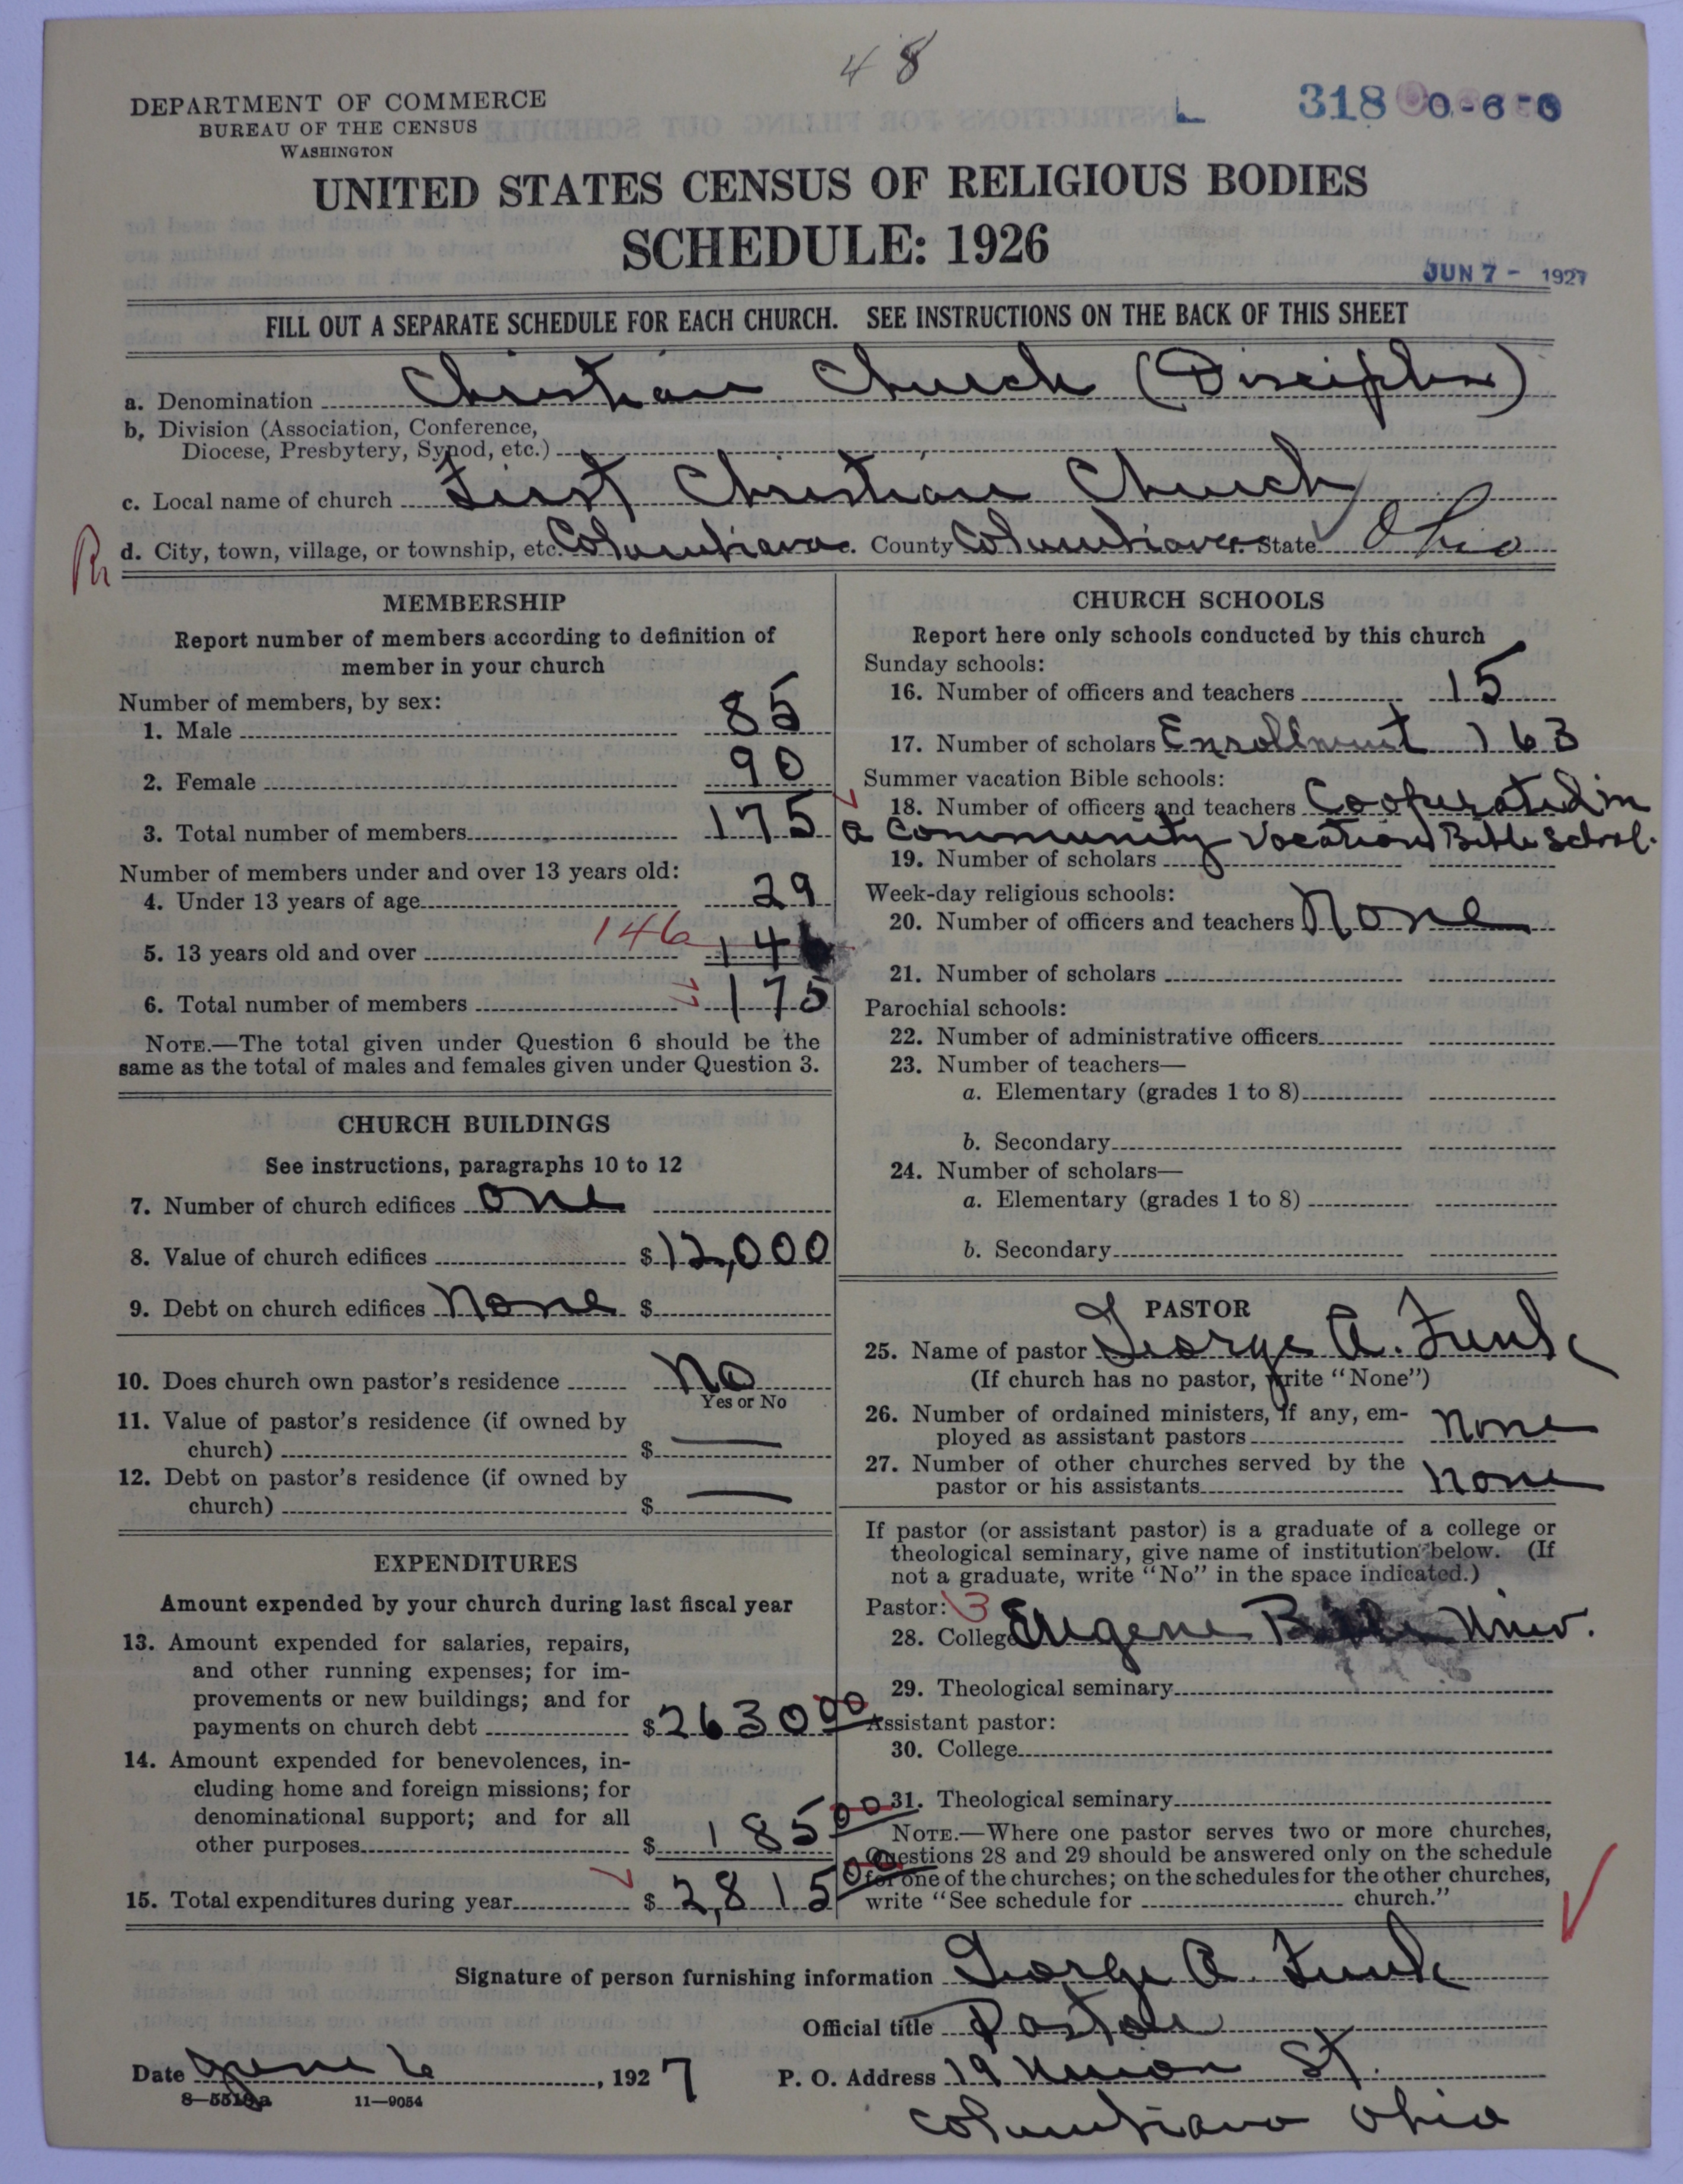 48
DEPARTMENT OF COMMERCE
BUREAU OF THE CENSUS
WASHINGTON
L 318 0-6-
UNITED STATES CENSUS OF RELIGIOUS BODIES
SCHEDULE: 1926
JUN 7 - 1927
FILL OUT A SEPARATE SCHEDULE FOR EACH CHURCH. SEE INSTRUCTIONS ON THE BACK OF THIS SHEET
a. Denomination Christian Church (Disciples)
b. Division (Association, Conference,
Diocese, Presbytery, Synod, etc.)
c. Local name of church First Christian Church
d. City, town, village, or township, etc. Columbiana County Columbiana State Ohio
MEMBERSHIP
Report number of members according to definition of
member in your church
Number of members, by sex:
1. Male 85
2. Female 90
3. Total number of members 175
Number of members under and over 13 years old:
4. Under 13 years of age 29
5. 13 years old and over 146 146
6. Total number of members 175
NOTE.—The total given under Question 6 should be the
same as the total of males and females given under Question 3.
CHURCH BUILDINGS
See instructions, paragraphs 10 to 12
7. Number of church edifices One
8. Value of church edifices $12,000
9. Debt on church edifices None $
10. Does church own pastor's residence No
Yes or No
11. Value of pastor's residence (if owned by
church) $ —
12. Debt on pastor's residence (if owned by
church) $ —
EXPENDITURES
Amount expended by your church during last fiscal year
13. Amount expended for salaries, repairs,
and other running expenses; for im-
provements or new buildings; and for
payments on church debt $2630 00
14. Amount expended for benevolences, in-
cluding home and foreign missions; for
denominational support; and for all
other purposes $ 185 00
15. Total expenditures during year $ 2,815 00
CHURCH SCHOOLS
Report here only schools conducted by this church
Sunday schools:
16. Number of officers and teachers 15
17. Number of scholars Enrollment 163
Summer vacation Bible schools:
18. Number of officers and teachers Cooperated in
a Community Vacation Bible School.
19. Number of scholars
Week-day religious schools:
20. Number of officers and teachers None
21. Number of scholars
Parochial schools:
22. Number of administrative officers
23. Number of teachers—
a. Elementary (grades 1 to 8)
b. Secondary
24. Number of scholars—
a. Elementary (grades 1 to 8)
b. Secondary
PASTOR
25. Name of pastor George A. Funk
(If church has no pastor, write "None")
26. Number of ordained ministers, if any, em-
ployed as assistant pastors None
27. Number of other churches served by the
pastor or his assistants None
If pastor (or assistant pastor) is a graduate of a college or
theological seminary, give name of institution below. (If
not a graduate, write "No" in the space indicated.)
Pastor: 3
28. College Eugene Bible Univ.
29. Theological seminary
Assistant pastor:
30. College
31. Theological seminary
NOTE.—Where one pastor serves two or more churches,
Questions 28 and 29 should be answered only on the schedule
for one of the churches; on the schedules for the other churches,
write "See schedule for church."
Signature of person furnishing information George A. Funk
Official title Pastor
Date June 6, 1927 P. O. Address 19 Union St.
8-5518a 11-9054
Columbiana Ohio